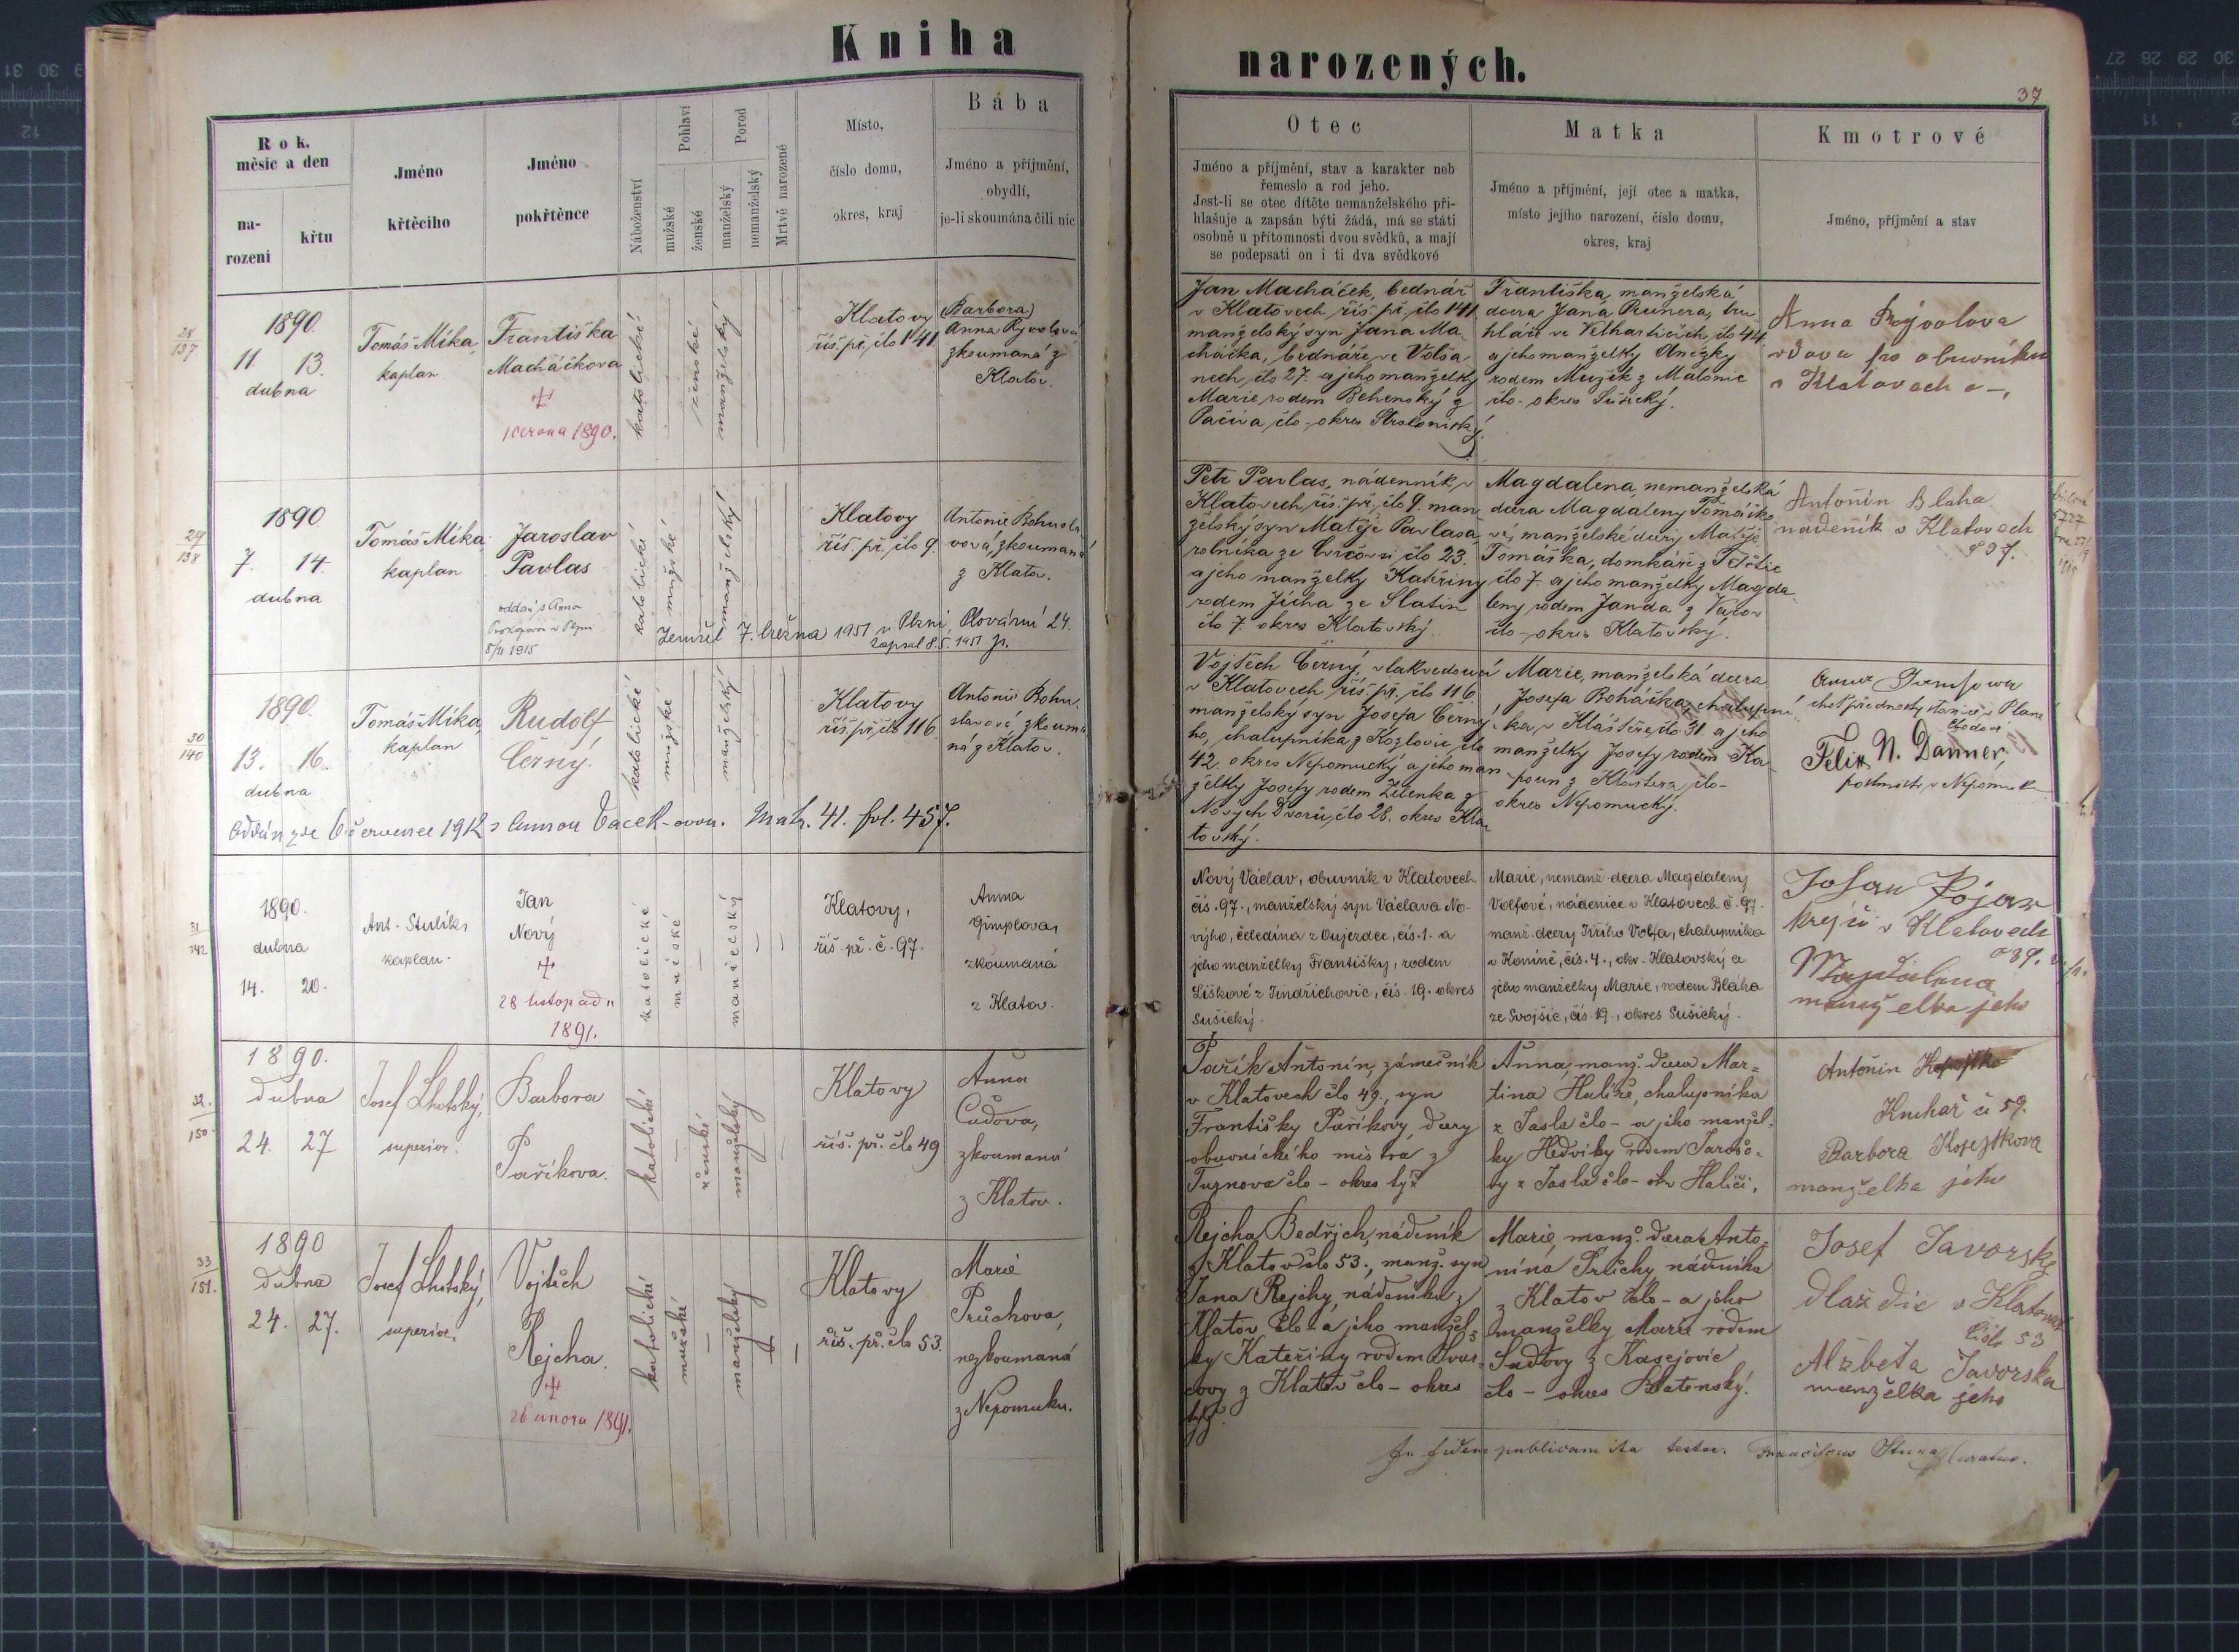 Kniha
narozených.
37
Rok,
měsíc a den
na-
rozeni
křtu
Jméno
křtěcího
Jméno
pokřtěnce
Náboženství
Pohlaví
mužské
ženské
Porod
manželský
nemanželský
Mrtvě narozené
Místo,
číslo domu,
okres, kraj
Bába
Jméno a příjmění,
obydlí,
je-li skoumána čili nic
Otec
Jméno a příjmění, stav a karakter neb
řemeslo a rod jeho.
Jest-li se otec dítěte nemanželského při-
hlašuje a zapsán býti žádá, má se státi
osobně u přítomnosti dvou svědků, a mají
se podepsati on i ti dva svědkové
Matka
Jméno a příjmění, její otec a matka,
místo jejího narození, číslo domu,
okres, kraj
Kmotrové
Jméno, příjmění a stav
28
137
1890.
11. 13.
dubna
Tomáš Míka,
kaplan
Františka
Macháčkova
1 června 1890.
katolické
ženské
manželský
Klatovy
říš. př. člo 141
(Barbora)
Anna Ryvolová
zkoumaná z
Klatov.
Jan Macháček, bednář
v Klatovech, říš. př. člo 141
manželský syn Jana Ma
cháčka, bednáře ve Volša
nech, člo 27. a jeho manželky
Marie rodem Behenský z
Pačiva člo - okres Strakonický.
Františka, manželská
dcera Jana Prunera, tru
hláře ve Velharticích, člo 44
a jeho manželky Anežky
rodem Muzik z Malonic
člo - okres Sušický.
Anna Rývolova
vdova po obuvníku
v Klatovech
29
138
1890
7. 14.
dubna
Tomáš Míka,
kaplan
Jaroslav
Pavlas
oddán s Anna
v Plzni
5/11 1915
katolické
mužské
manželský
Klatovy
říš. př. člo 9.
Antonie Bohusla
vová, zkoumaná
z Klatov.
Zemřel 7. března 1951 v Plzni, Plovární 24.
Zapsal 8.5. 1951
Petr Pavlas, nádenník v
Klatovech, říš. př. člo 9. man
želský syn Matěje Pavlasa,
rolníka ze člo 23.
a jeho manželky Kateřiny
rodem Jícha ze Slatin
člo 7. okres Klatovský.
Magdalena, nemanželská
dcera Magdaleny Tomáško
vé, manželské dcery Matěje
Tomáška, domkáře z
člo 7. a jeho manželky Magda
leny rodem Janda z
člo - okres Klatovský.
Antonín Blaha
nádeník v Klatovech
č 97.
30
140
1890.
13. 16.
dubna
Tomáš Míka,
kaplan
Rudolf
Černý.
katolické
mužské
manželský
Klatovy
říš. př. člo 116
Antonie Bohu
slavová, zkouma
ná z Klatov.
Oddán zde 6 července 1912 s Annou Vacek-ovou. Matr. 41. fol. 457.
Vojtěch Černý, vlakvedoucí
v Klatovech, říš. př. člo 116
manželský syn Josefa Černé
ho, chalupníka z Kozlovic, člo
42. okres Nepomucký a jeho man
želky Josefy rodem Zelenka z
Nových Dvorů, člo 28. okres Kla
tovský.
Marie, manželská dcera
Josefa Boháčka, chalupní
ka, v Klášteře, člo 31. a jeho
manželky Josefy rodem Ka
poun z Kláštera, člo -
okres Nepomucký.
Anna
choť přednosty stanice v Plané
Felix N. Danner,
v Nepomuku
31
142
1890.
dubna
14. 20.
Ant. Stulík,
kaplan.
Jan
Nový
28 listopadu
1891.
katolické
mužské
manželský
Klatovy,
říš. př. č. 97.
Anna
Gimplova,
zkoumaná
z Klatov.
Nový Václav, obuvník v Klatovech
čís. 97., manželský syn Václava No-
výho, čeledína z Oujezdce, čís. 1. a
jeho manželky Františky, rodem
Liškové z Jindřichovic, čís. 19. okres
Sušický.
Marie, nemanž. dcera Magdaleny
Volfové, nádenice v Klatovech č. 97.
manž. dcery Jiřího Volfa, chalupníka
v Koníně, čís. 4., okr. Klatovský a
jeho manželky Marie, rodem Bláha
ze Svojšic, čís. 19., okres Sušický.
Johan Pojar
krejčí v Klatovech
č 89.
Magdalena
manželka jeho
32.
150
1890.
dubna
24. 27
Josef Lhotský,
superior.
Barbora
Paříkova.
katolické
ženské
manželský
Klatovy
říš. př. člo 49
Anna
Čudova,
zkoumaná
z Klatov.
Pařík Antonín, zámečník
v Klatovech člo 49., syn
Františky Paříkovy, dcery
obuvnického mistra z
Turnova člo - okres týž
Anna, manž. dcera Mar=
tina Haliře, chalupníka
z Jasla člo - a jeho manžel-
ky Hedviky rodem Jarošo-
vy z Jasla člo - okr. Haliči.
Antonín Kopejtko
Kuchař č 59.
Barbora Kopejtkova
manželka jeho
33
151.
1890
dubna
24. 27.
Josef Lhotský,
superior.
Vojtěch
Rejcha.
26 února 1891.
katolické
mužské
manželský
Klatovy
říš. př. člo 53.
Marie
Průchova,
nezkoumaná
z Nepomuku.
Rejcha Bedřich, nádeník
z Klatov člo 53., manž. syn
Jana Rejchy, nádeníka z
Klatov člo - a jeho manžel=
ky Kateřiny rodem
z Klatov člo - okres
týž.
Marie, manž. dcera Anto=
nína Průchy nádeníka
z Klatov člo - a jeho
manželky Marie rodem
Sudovy z Kasejovic
člo - okres Blatenský.
Josef Javorský
dlaždič v Klatovech
číslo 53
Alžběta Javorska
manželka jeho
In fidem publicam ita testor. Franciscus Curatus.